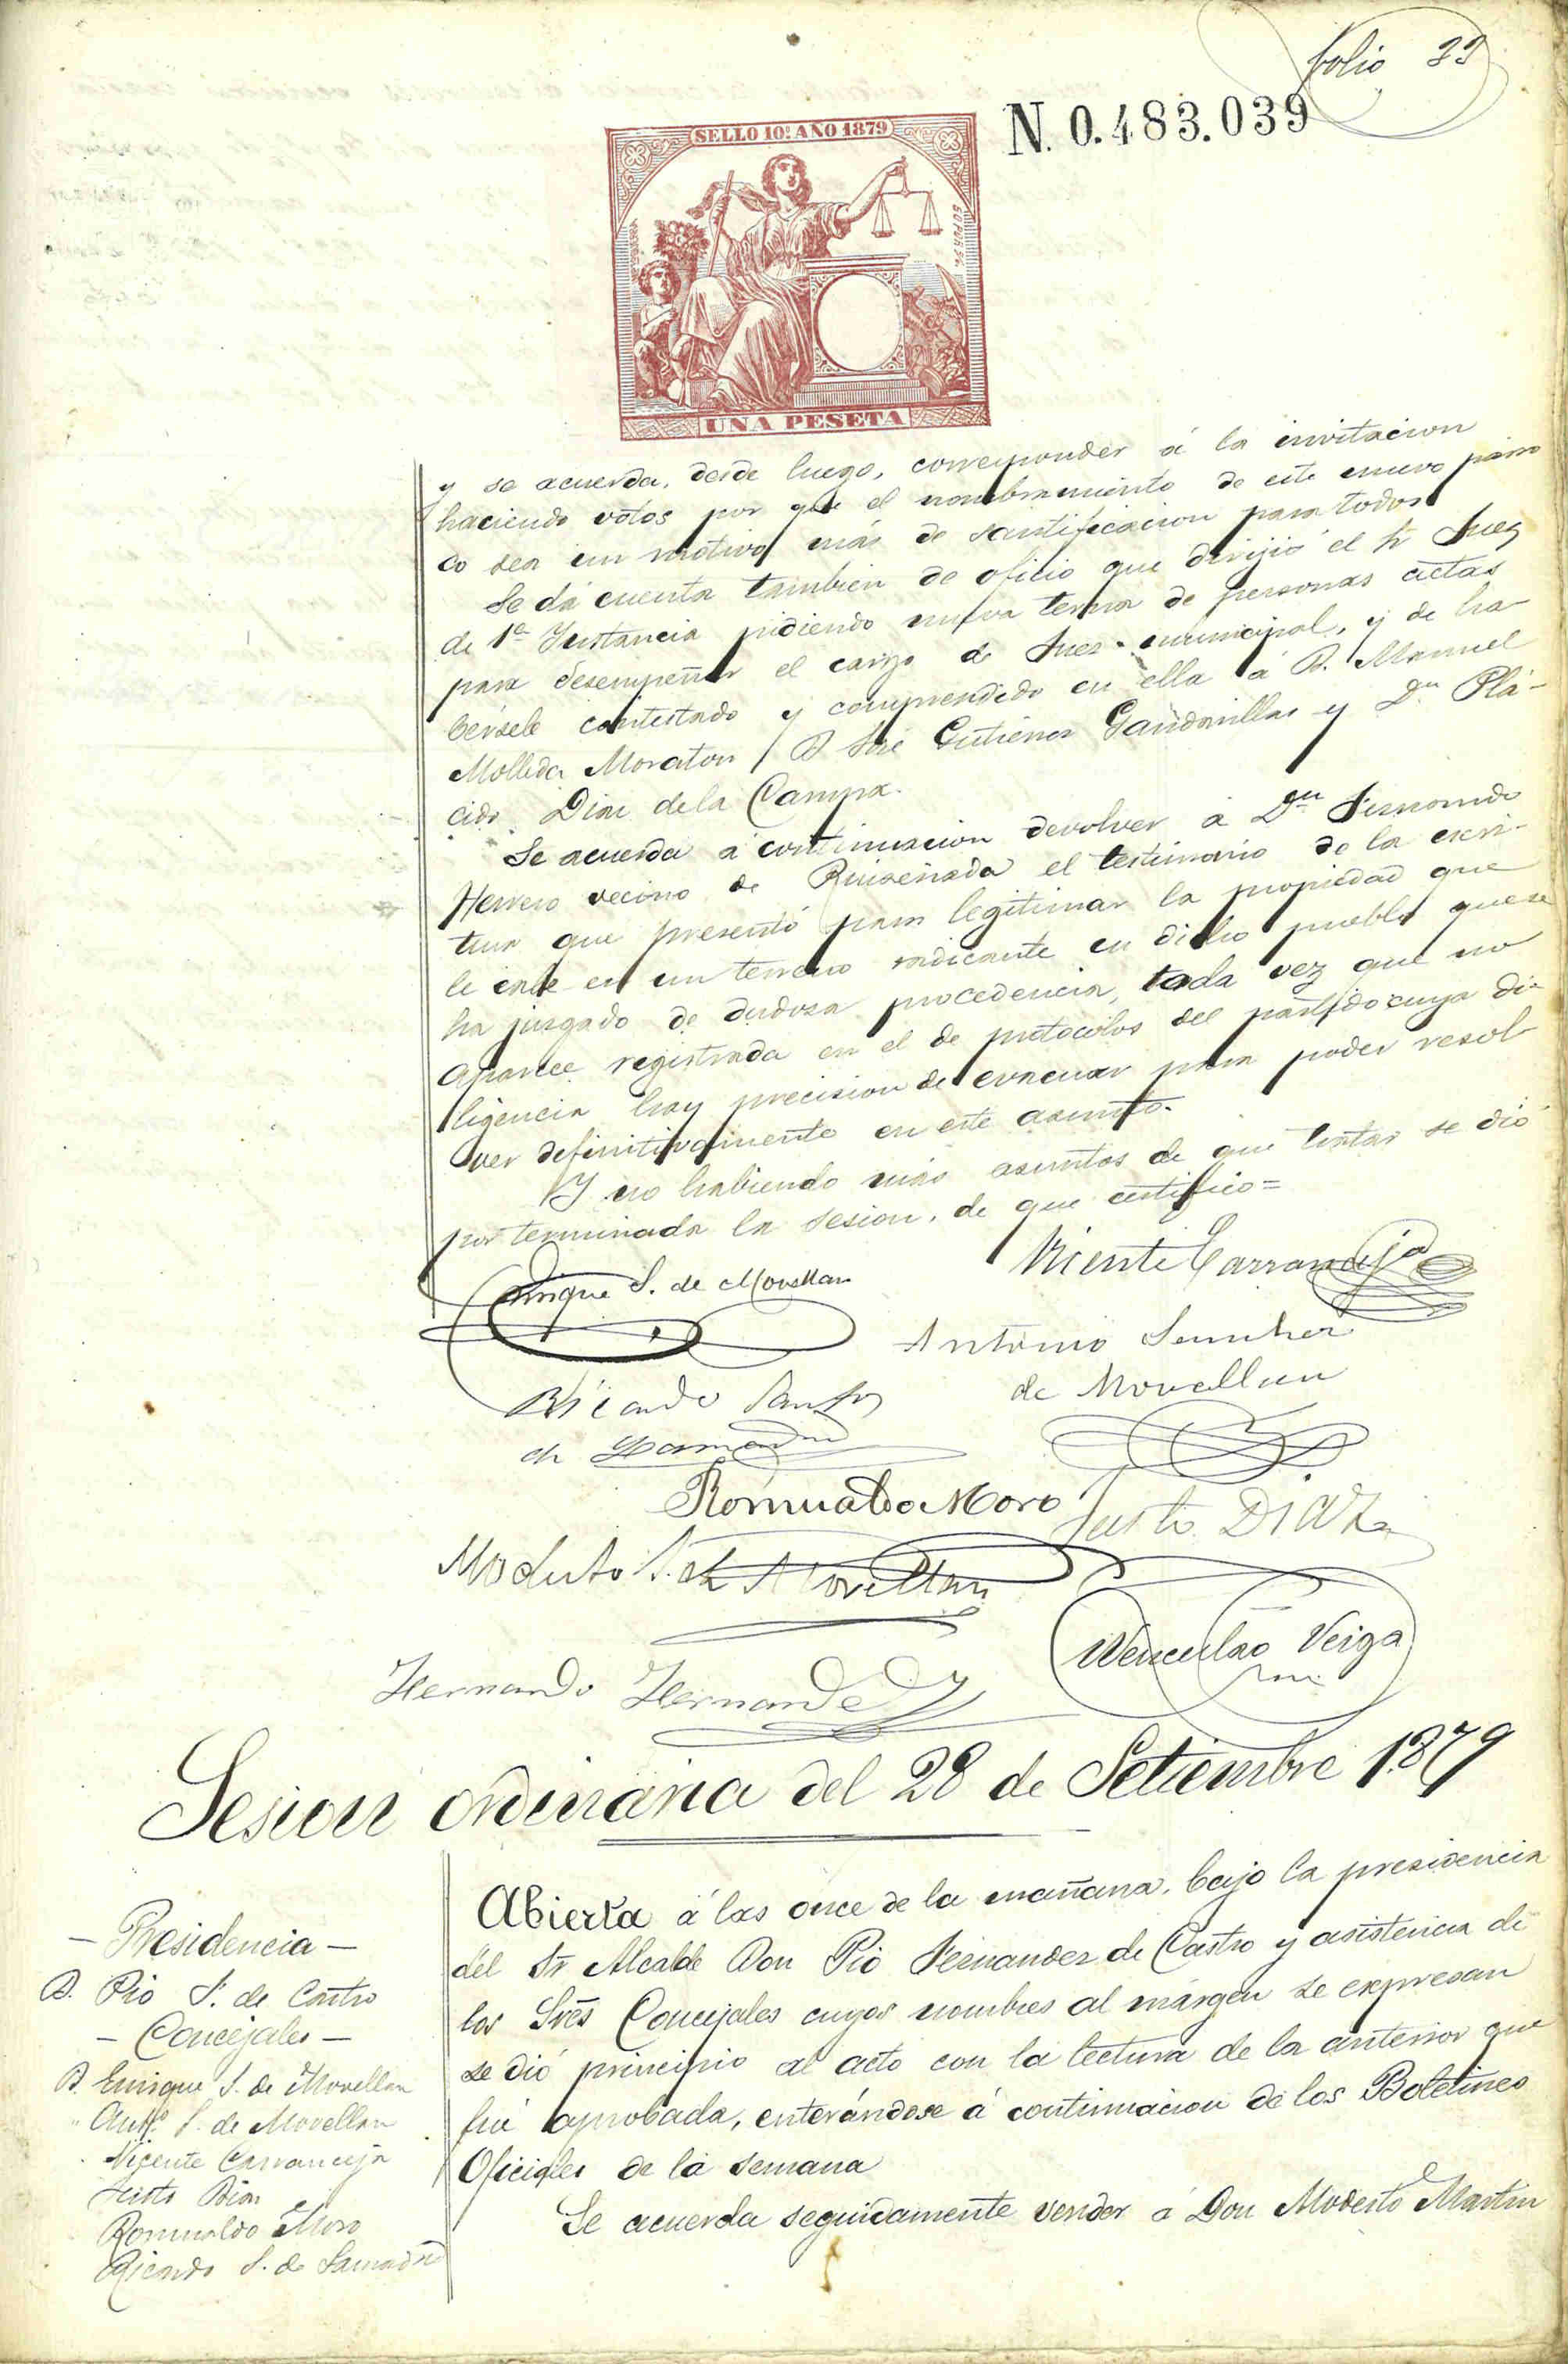 folio 22
N. 0.483.039
SELLO 10º AÑO 1879
UNA PESETA
y se acuerda, desde luego, corresponder á la invitacion
haciendo votos por que el nombramiento de este nuevo párro
co sea un motivo más de santificacion para todos
Se dá cuenta tambien de oficio que dirijió el Sr Juez
de 1ª Instancia pidiendo nueva terna de personas actas
para desempeñar el cargo de Juez municipal, y de ha-
bérsele contestado y comprendido en ella á D. Manuel
Molleda Moraton, D. José Gutierrez Gandarillas y Dn Plá-
cido Diaz de la Campa.
Se acuerda á continuacion devolver á Dn Fernando
Herrero vecino de Ruiseñada el testimonio de la escri-
tura que presentó para legitimar la propiedad que
le cabe en un terreno radicante en dicho pueblo que se
ha juzgado de dudosa procedencia, toda vez que no
aparece registrada en el de protocolos del partido cuya di-
ligencia hay precision de evacuar para poder resol-
ver definitivamente en este asunto.
Y no habiendo más asuntos de que tratar se dió
por terminada la sesion, de que certifico=
Vicente Carranceja
Enrique S. de Movellan
Antonio Sanchez
de Movellan
Ricardo Santos
de Lamadrid
Romualdo Moro
Justo Diaz
Modesto S. de Movellan
Wenceslao Veiga
Hernando Hernandez
Sesion ordinaria del 28 de Setiembre 1.879
- Presidencia -
D. Pio F. de Castro
- Concejales -
D. Enrique S. de Movellan
" Antº S. de Movellan
Vicente Carranceja
Justo Diaz
Romualdo Moro
Ricardo S. de Lamadrid
Abierta á las once de la mañana, bajo la presidencia
del Sr Alcalde Don Pio Fernandez de Castro y asistencia de
los Srēs Concejales cuyos nombres al márgen se expresan
se dió principio al acto con la lectura de la anterior que
fué aprobada, enterándose á continuacion de los Boletines
Oficiales de la semana
Se acuerda seguidamente vender á Don Modesto Martin